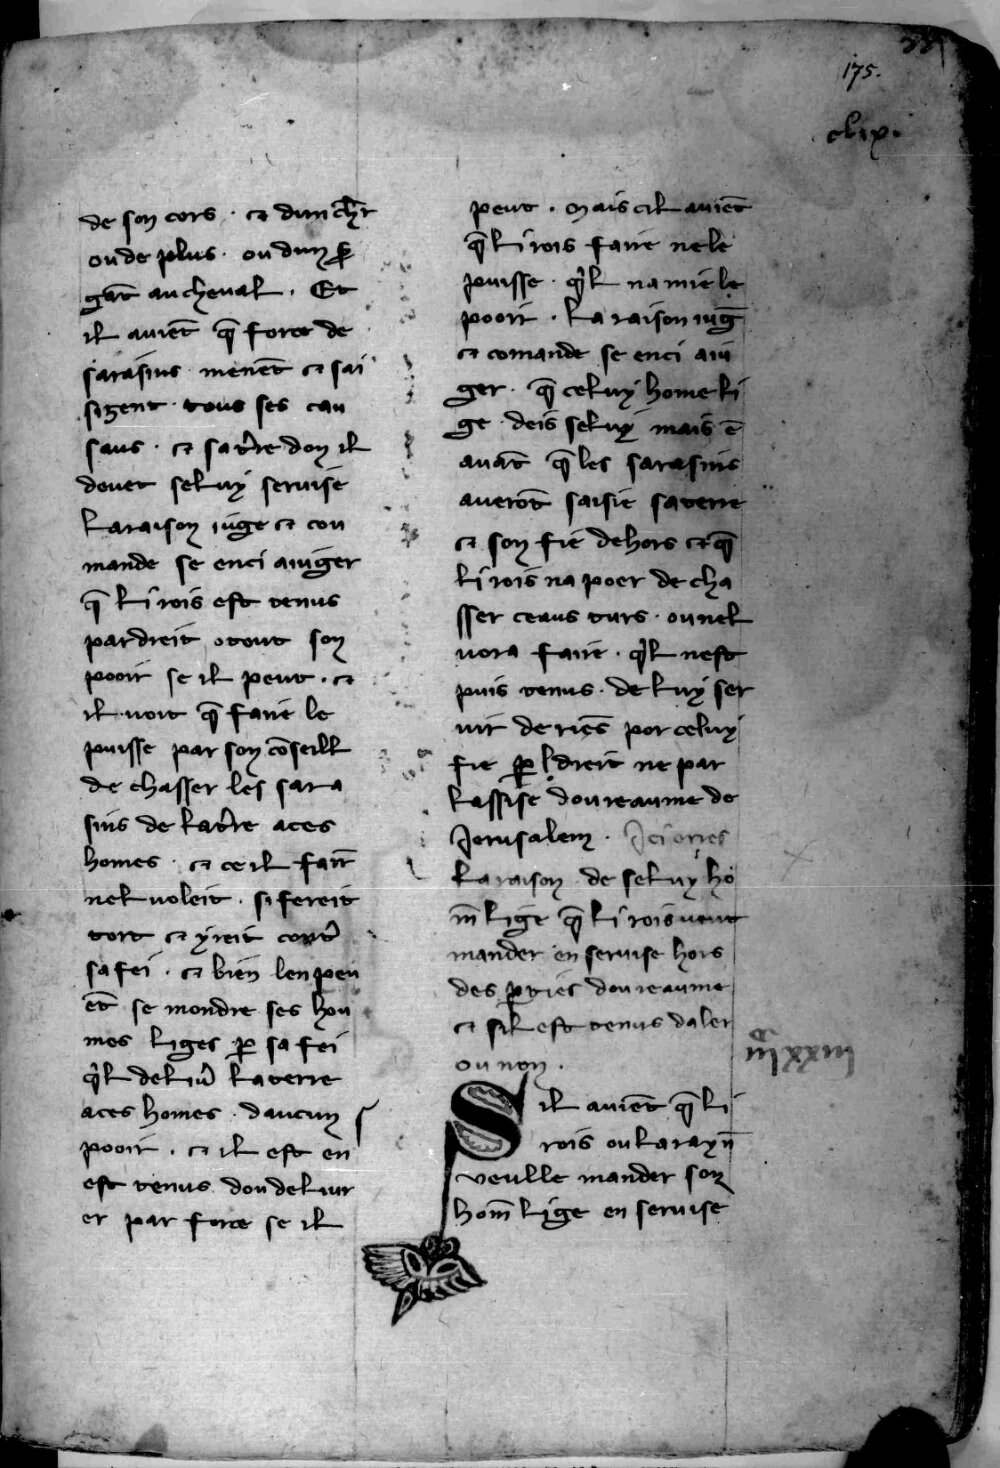 175.
clixx.
de son cors · ⁊ dun chr̄
ou de plus · ou dun ꝑ
gāt au cheual . Et
il auiēt q̄ force de
sarasins menēt ⁊ sai
sizent tous ses cau
saus · ⁊ sa tr̄re don il
douet seluy seruise
la raison iuge ⁊ cou
mande se enci auiger
q̄ li rois est tenus
par dreit o tout son
pooir se il peut . ⁊
il uoit q̄ faire le
puisse par son cōseill
de chasser les sara
sins de la tr̄re a ces
homes · ⁊ ce il faire
nel uoleit . si fereit
tort ⁊ yreit contr̄
sa fei . ⁊ bien len peu
ēt se mondre ses hou
mes liges ꝑ sa fei
q̄l deliūr la terre
a ces homes · daucun
pooir . ⁊ il est en
est tenus dou deliur
er par force se il
peut . Mais cil auiēt
q̄ li rois faire ne le
puisse · q̄l na mie le
pooir . La raison iuḡ
⁊ comande se enci aui
ger · q̄ celuy home li
ge deis seluy mais ē
auāt q̄ les sarasins
auerōt saisie sa terre
⁊ son fie dehors ⁊ q̄
li rois na poer de cha
sser ceaus turs · ou nel
uora faire · q̄l nest
puis tenus · de luy ser
uir de riēs por celuy
fie ꝑ dreit ne par
lassise dou reaume de
Jerusalem · Ici orres
la raison de seluy ho
m̄ lige q̄ li rois ueut
mander en seruise hors
des ꝑties dou reaume
⁊ sil est tenus daler
ou non .
Sil auiēt q̄ li
rois ou la rayn̄
veulle mander son
hom̄ lige en seruise